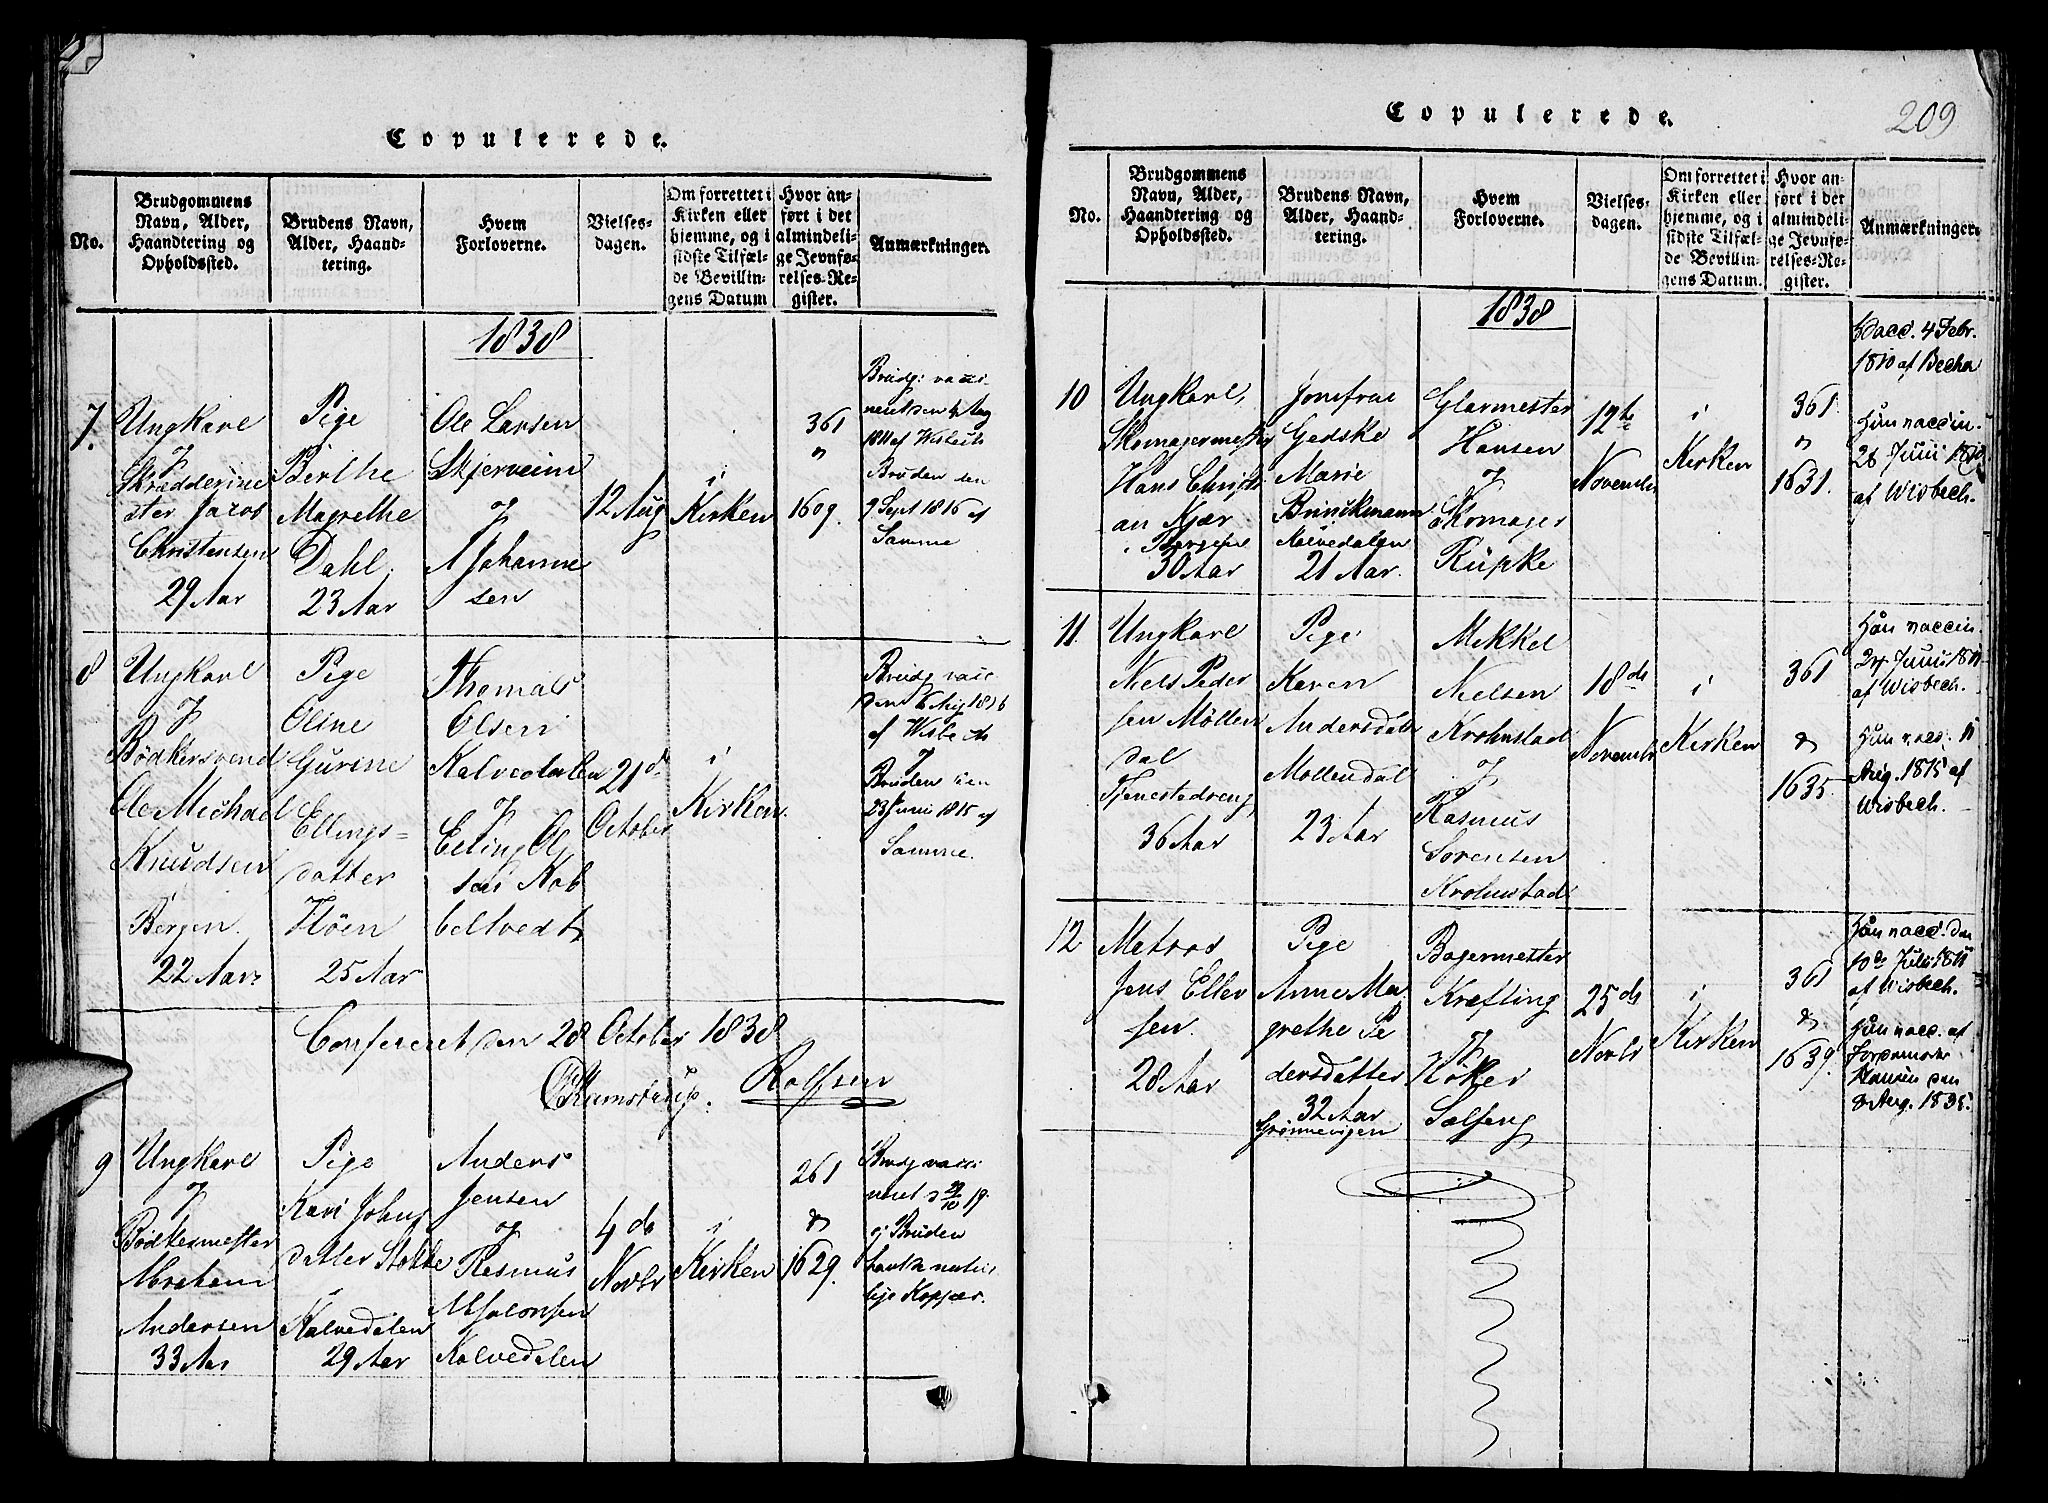 Copulerede.
No.
Brudgommens
Navn, Alder,
Haandtering og
Opholdssted.
Brudens Navn,
Alder, Haand-
tering.
Hvem
Forloverne.
Vielses-
dagen.
Om forrettet i
Kirken eller
hjemme, og i
sidste Tilfæl-
de Bevillin-
gens Datum
Hvor an-
ført i det
almindeli-
ge Jevnfø-
relses-Re-
gister.
Anmærkninger.
1838
7.
Ungkarl
og
Skrædderme
ster Jacob
Christensen
29 Aar
Pige
Berthe
Magrethe
Dahl.
23 Aar
Ole Larsen
Skjerveim
og
A Johanne
sen
12 Aug
i
Kirken
361
"
1609.
Brudg: vacci
neret den 4 Aug
1811 af Wisbech
Bruden den
9 Sept 1816 af
Samme
8
Ungkarl
og
Bødkersvend
Ole Michael
Knudsen
Bergen.
22 Aar
Pige
Oline
Gurine
Ellings-
datter
Fløen
25 Aar
Thomas
Olsen
Kalvedalen
og
Elling Ol
sen Kob
beltvedt
21de
October
i
Kirken.
Brudg vacc
den 6 Aug 1816
af Wisbech
og
Bruden den
23 Juni 1815 af
Samme.
Confereret den 28 October 1838
Ramstrup. Rolfsen
9
Ungkarl
og
Bødkermester
Abraham
Andersen
33 Aar
Pige
Kari Johns
datter Stokke
Kalvedalen
29 Aar
Anders
Jensen
og
Rasmus
Absalonsen
Kalvedalen
4de
Novbr
i
Kirken
261
&
1629.
Brudg vacci
neret d 29/10 19
og Bruden
havde natur
lige Kopper.
Copulerede.
209
No.
Brudgommens
Navn, Alder,
Haandtering og
Opholdssted.
Brudens Navn,
Alder, Haand-
tering.
Hvem
Forloverne.
Vielses-
dagen.
Om forrettet i
Kirken eller
hjemme, og i
sidste Tilfæl-
de Bevillin-
gens Datum.
Hvor an-
ført i det
almindeli-
ge Jevnfø-
relses-Re-
gister.
Anmærkninger.
1838
10
Ungkarl,
Skomagermester
Hans Christi
an Kjær
i Bergen
30 Aar
Jomfrue
Gedske
Marie
Brinckmann
Kalvedalen
21 Aar.
Glarmester
Hansen
og
Skomager
Rüpke
12te
November
i
Kirken
361
"
1631.
vacc. 4 Febr.
1810 af Becher
Hun vaccin.
28 Juni 1820
af Wisbech.
11
Ungkarl
Niels Peder
sen Møllen
dal
Tjenestedreng
36 Aar
Pige
Karen
Andersdatter
Møllendal
23 Aar
Mikkel
Nielsen
Krohnstad
og
Rasmus
Sørensen
Krohnstad
18de
Novembr
i
Kirken
361
&
1635
Han vaccin.
24 Juni 1811
af Wisbech.
Hun vacc. 11
Aug. 1815 af
Wisbech.
12
Matros
Jens Eller
sen.
28 Aar
Pige
Anne Ma
grethe Pe
dersdatter
32 Aar
Grønnevigen
Bagermester
Krefting
og
Køker
Solseng
25de
Novbr
i
Kirken
361
&
1639.
Han vacc. den
10de Juli 1811
af Wisbech.
Hun vacc. af
Jordemoder
Hansen den
8 Aug. 1835.